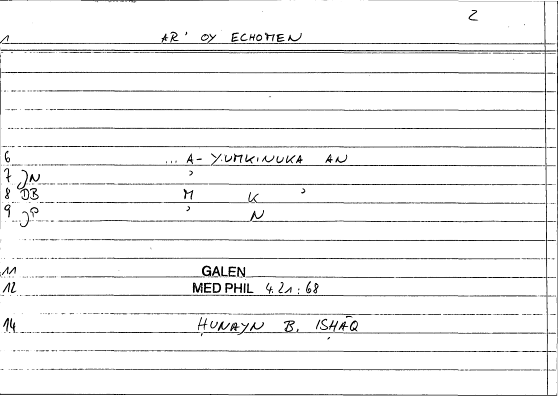 2
1 AR' OY ECHOMEN
6 ... A- YUMKINUKA AN
7 )N '
8 DB M K '
9 )P ' N
11 GALEN
12 MED PHIL 4.21:68
14 ḤUNAYN B. ISḤĀQ